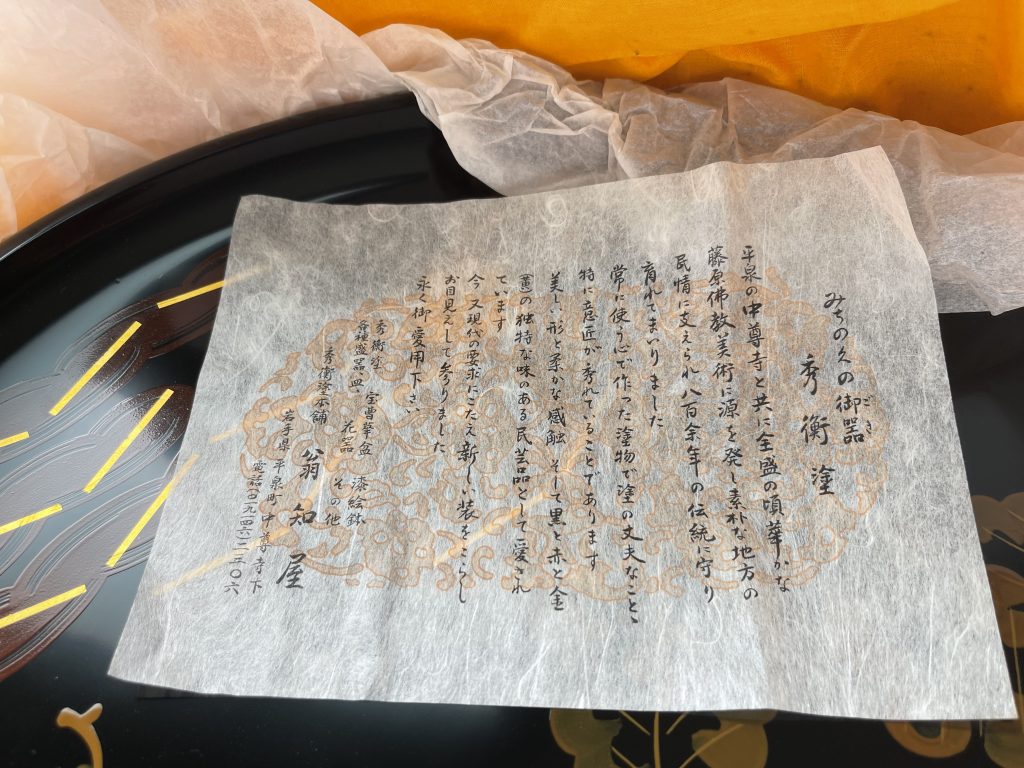 みちの久の御器
ごき
秀衡塗
平泉の中尊寺と共に全盛の頃華かな
藤原佛教美術に源を発し素朴な地方の
民情に支えられ八百余年の伝統に守り
育れてまいりました
常に使う心で作った塗物で塗の丈夫なこと、
特に意匠が秀れていることであります
美しい形と柔かな感触 そして黒と赤と金
の独特な味のある民芸品として愛され
ています
今又現代の要求にこたえ新しい装をこらし
お目見えして参りました
永く御愛用下さい
秀衡塗 宝曹華盆 漆絵鉢
各種盛器皿 花器 その他
秀衡塗本舗 翁知屋
岩手県平泉町中尊寺下
電話(〇一九一四六)二三〇六